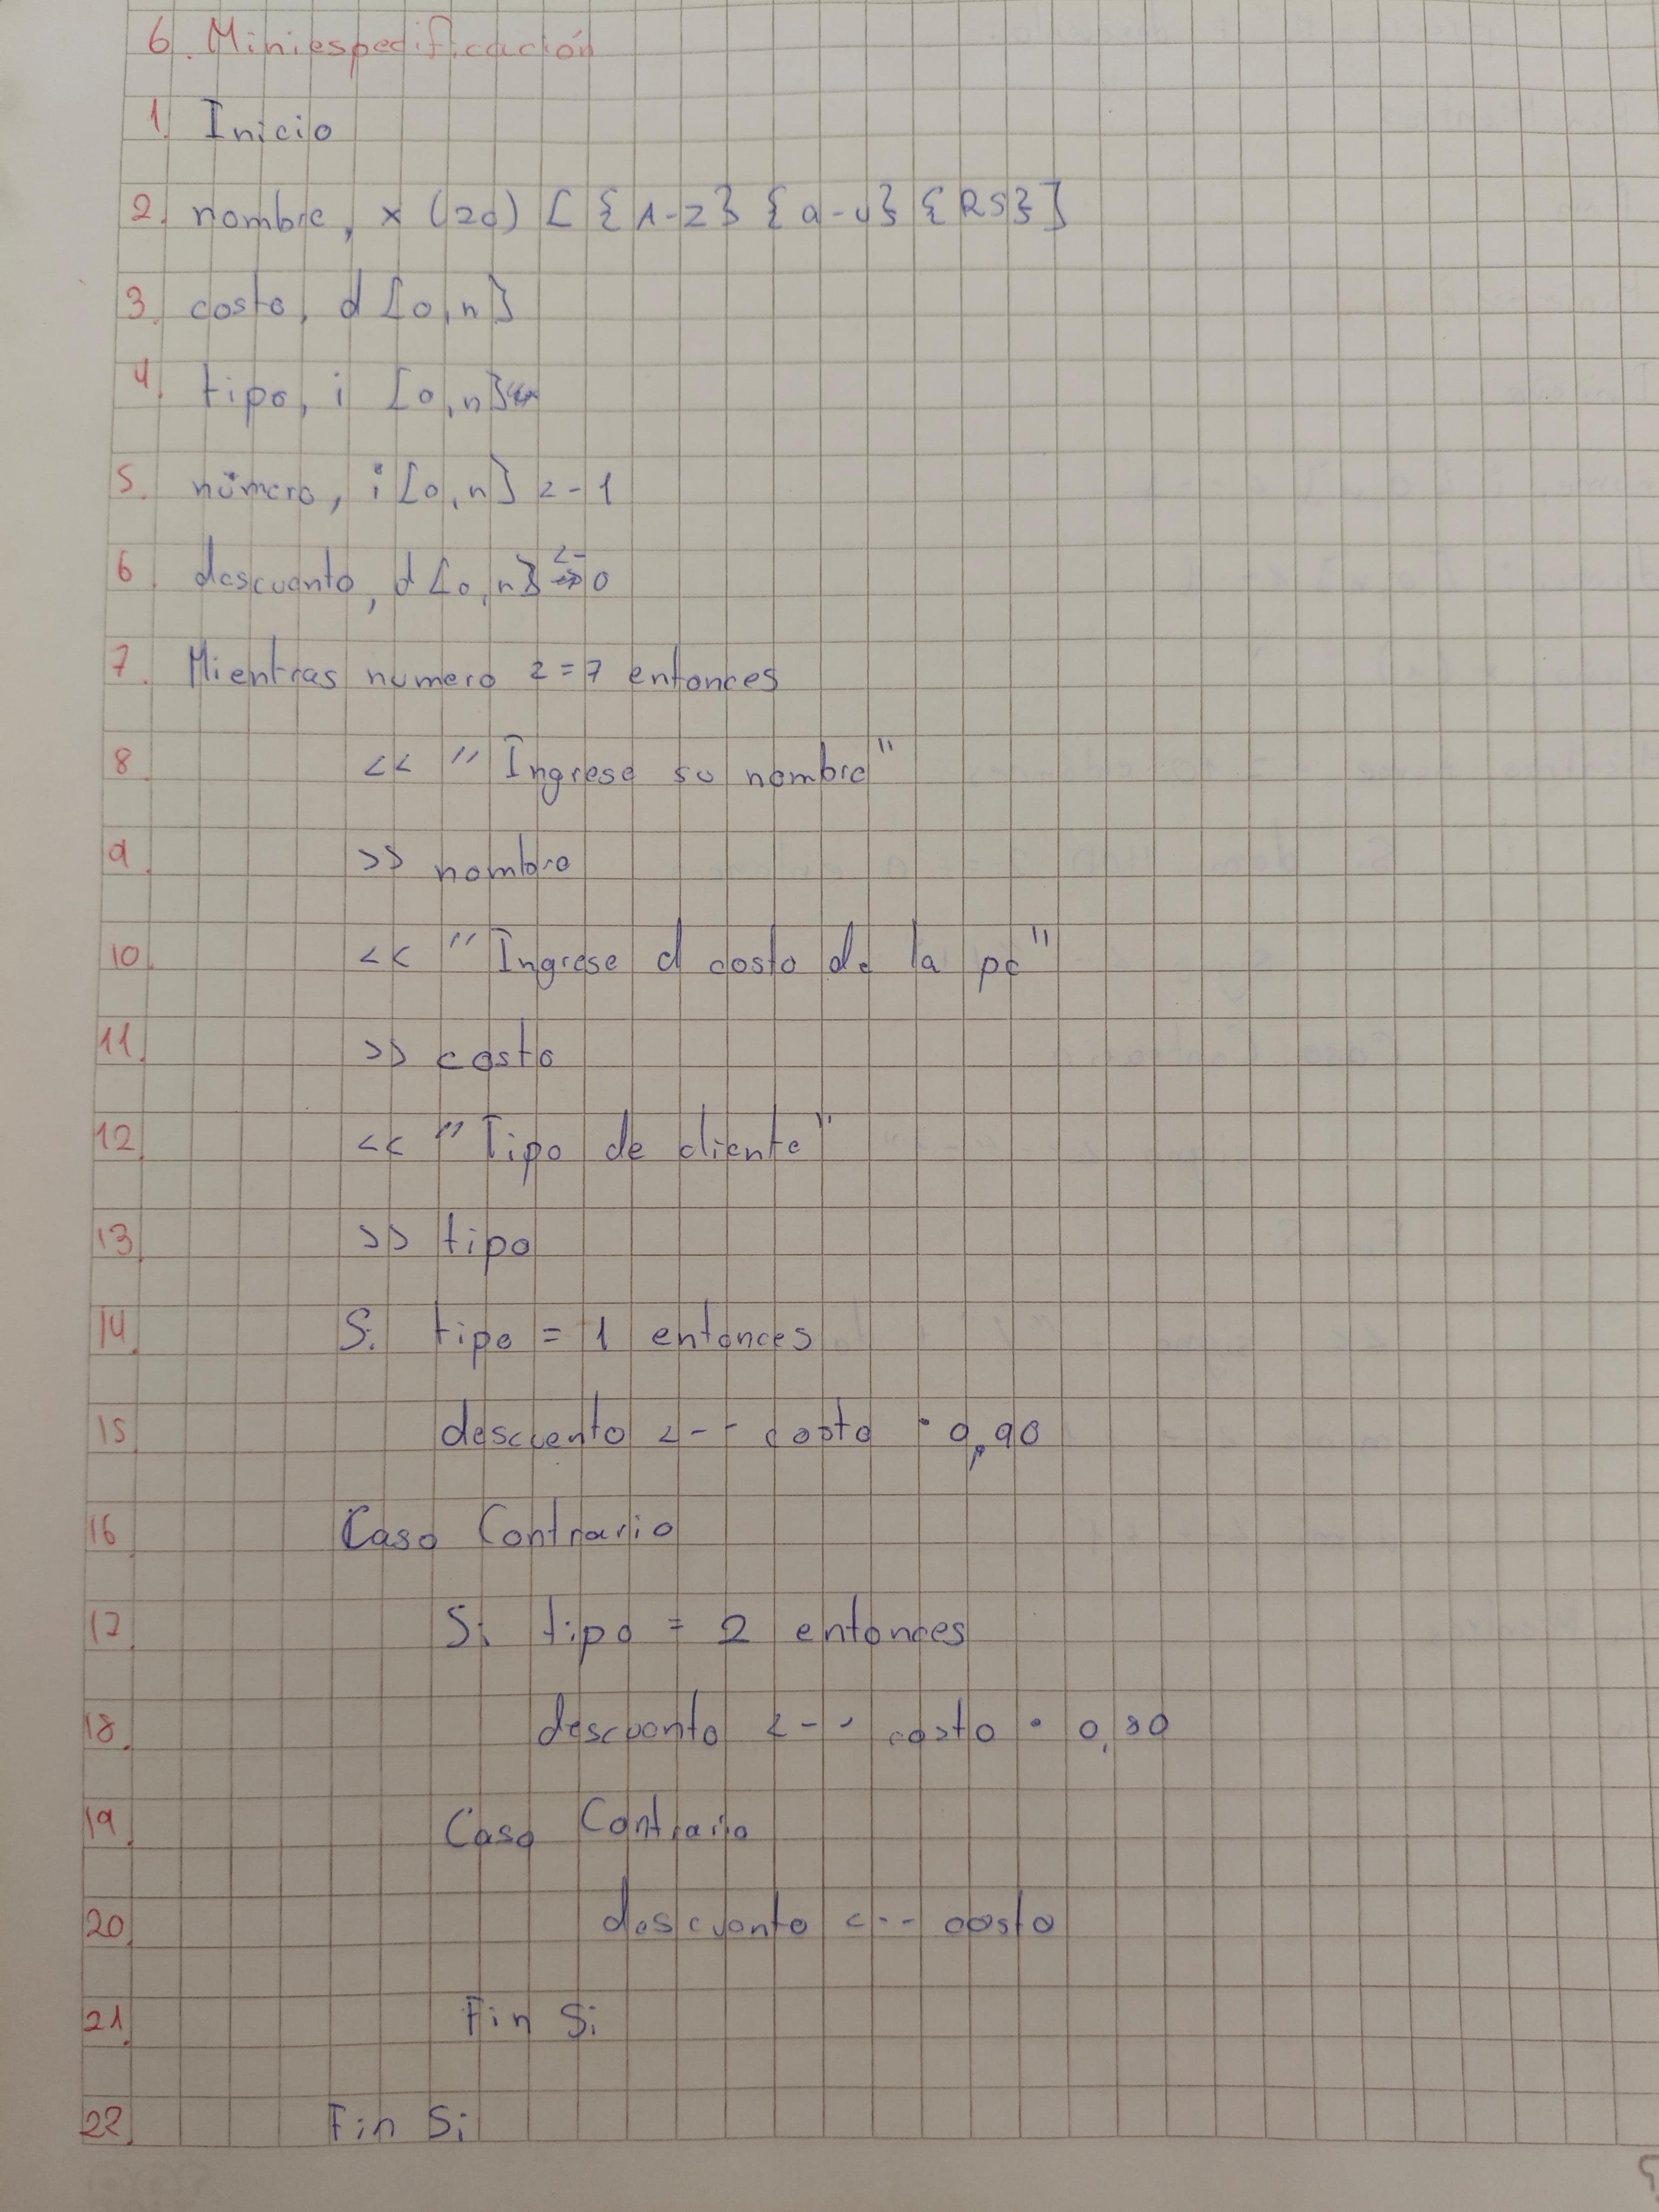 6. Miniespedificación
1. Inicio
2. nombre, x (20) [ {A-Z} {a-u} {RS} ]
3. costo, d [0,n]
4 tipo, i [0,n]
5. número, i [0,n] <- 1
6. descuento, d [0,n] <- 0
7. Mientras numero <= 7 entonces
8 << "Ingrese su nombre"
9 >> nombre
10. << "Ingrese el costo de la pc"
11. >> costo
12. << "Tipo de cliente"
13. >> tipo
14. Si tipo = 1 entonces
15 descuento <-- costo · 0,90
16 Caso Contrario
17 Si tipo = 2 entonces
18. descuento <-- costo · 0,80
19. Caso Contrario
20. descuento <-- costo
21. Fin Si
22. Fin Si